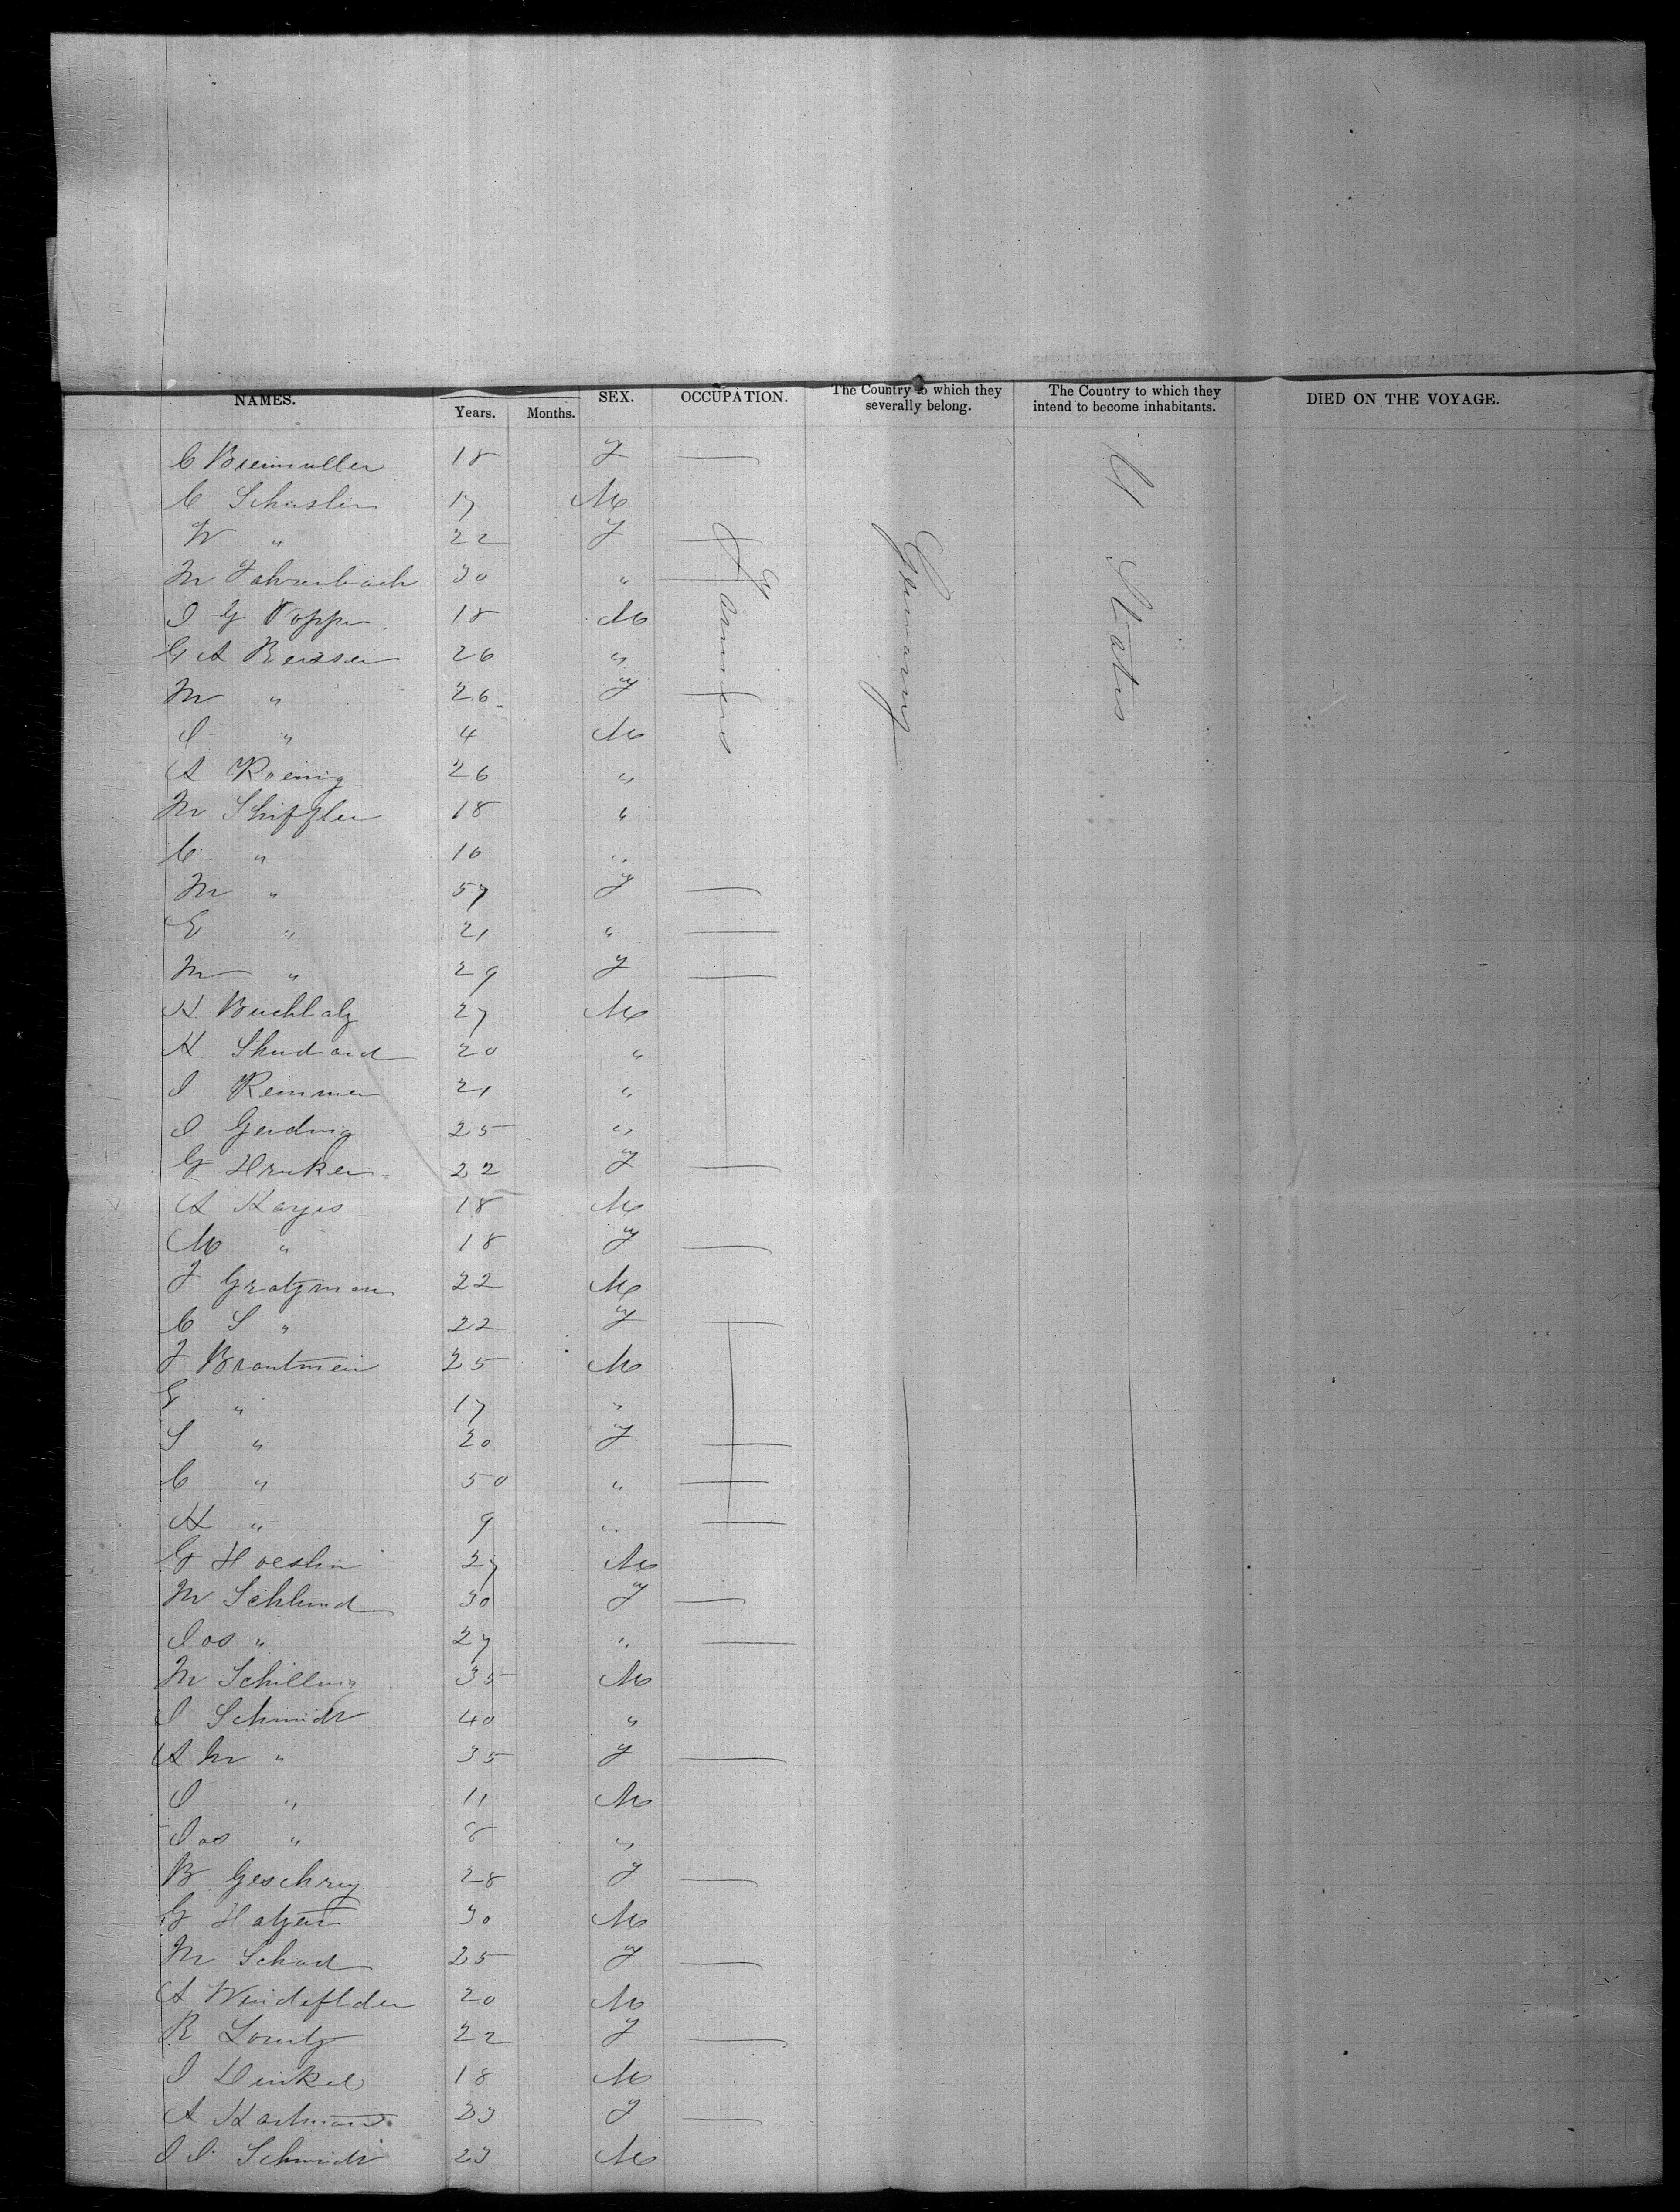 NAMES. Years. Months. SEX. OCCUPATION. The Country to which they severally belong. The Country to which they intend to become inhabitants. DIED ON THE VOYAGE.
Farmers
Germany
U States
C 18 F —
C 17 M
W " 22 F —
M Fahrenbach 30 " —
J G Popper 18 M
G A 26 "
M " 26 F —
J " 4 M
A Koenig 26 "
M 18 "
C " 16 "
M " 57 F —
E " 21 " —
M " 29 F —
H Buchholz 27 M
H 20 "
J Remmer 21 "
J Gerding 25 "
G 22 F —
A Kayes 18 M
M " 18 F —
F Gratzman 22 M
C S " 22 F —
F 25 M
E " 17 "
S " 20 F —
C " 50 " —
H " 9 " —
G 27 M
M Schlund 30 F —
Jos " 27 " —
M Schilling 35 M
J Schmidt 40 "
A M " 35 F —
J " 11 M
Jos " 8 "
B 28 F —
G 30 M
M Schad 25 F —
A 20 M
R 22 F —
J Dinkel 18 M
A Hartmann 23 F —
J J Schmidt 23 M